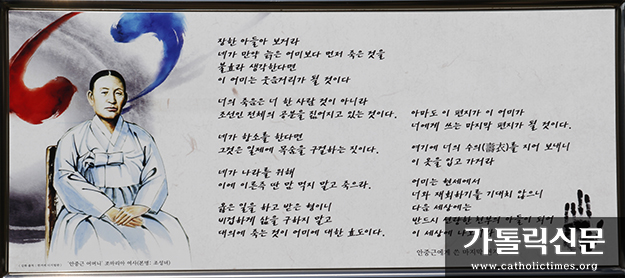 장한 아들아 보거라
네가 만약 늙은 어미보다 먼저 죽은 것을
불효라 생각한다면
이 어미는 웃음거리가 될 것이다
너의 죽음은 너 한 사람 것이 아니라
조선인 전체의 공분을 짊어지고 있는 것이다.
네가 항소를 한다면
그것은 일제에 목숨을 구걸하는 짓이다.
네가 나라를 위해
이에 이른즉 딴 맘 먹지 말고 죽으라.
옳은 일을 하고 받은 형이니
비겁하게 삶을 구하지 말고
대의에 죽는 것이 어미에 대한 효도이다.
아마도 이 편지가 이 어미가
너에게 쓰는 마지막 편지가 될 것이다.
여기에 너의 수의(壽衣)를 지어 보내니
이 옷을 입고 가거라
어미는 현세에서
너와 재회하기를 기대치 않으니
다음 세상에는
반드시 선량한 천부의 아들이 되어
이 세상에
안중근에게 온 마지막
'안중근 어머니' 조마리아 여사(본명: 조성녀)
가톨릭신문
www.catholictimes.org